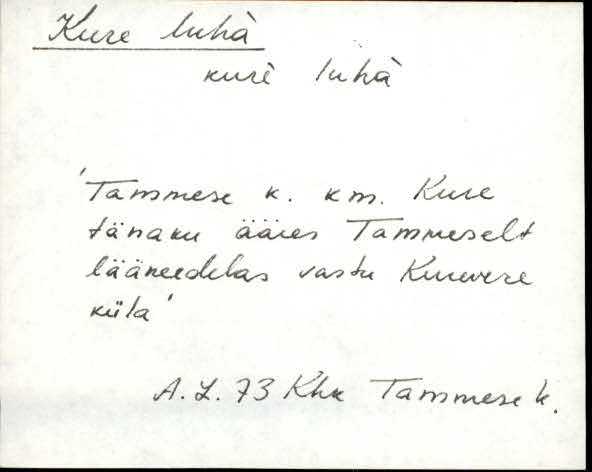 Kure luhà
kurè luhà
'Tammese k. km. Kure
tänaku ääres Tammeselt
lääneedelas vastu Kuuvere
küla'
A. L. 73 Khk Tammese k.